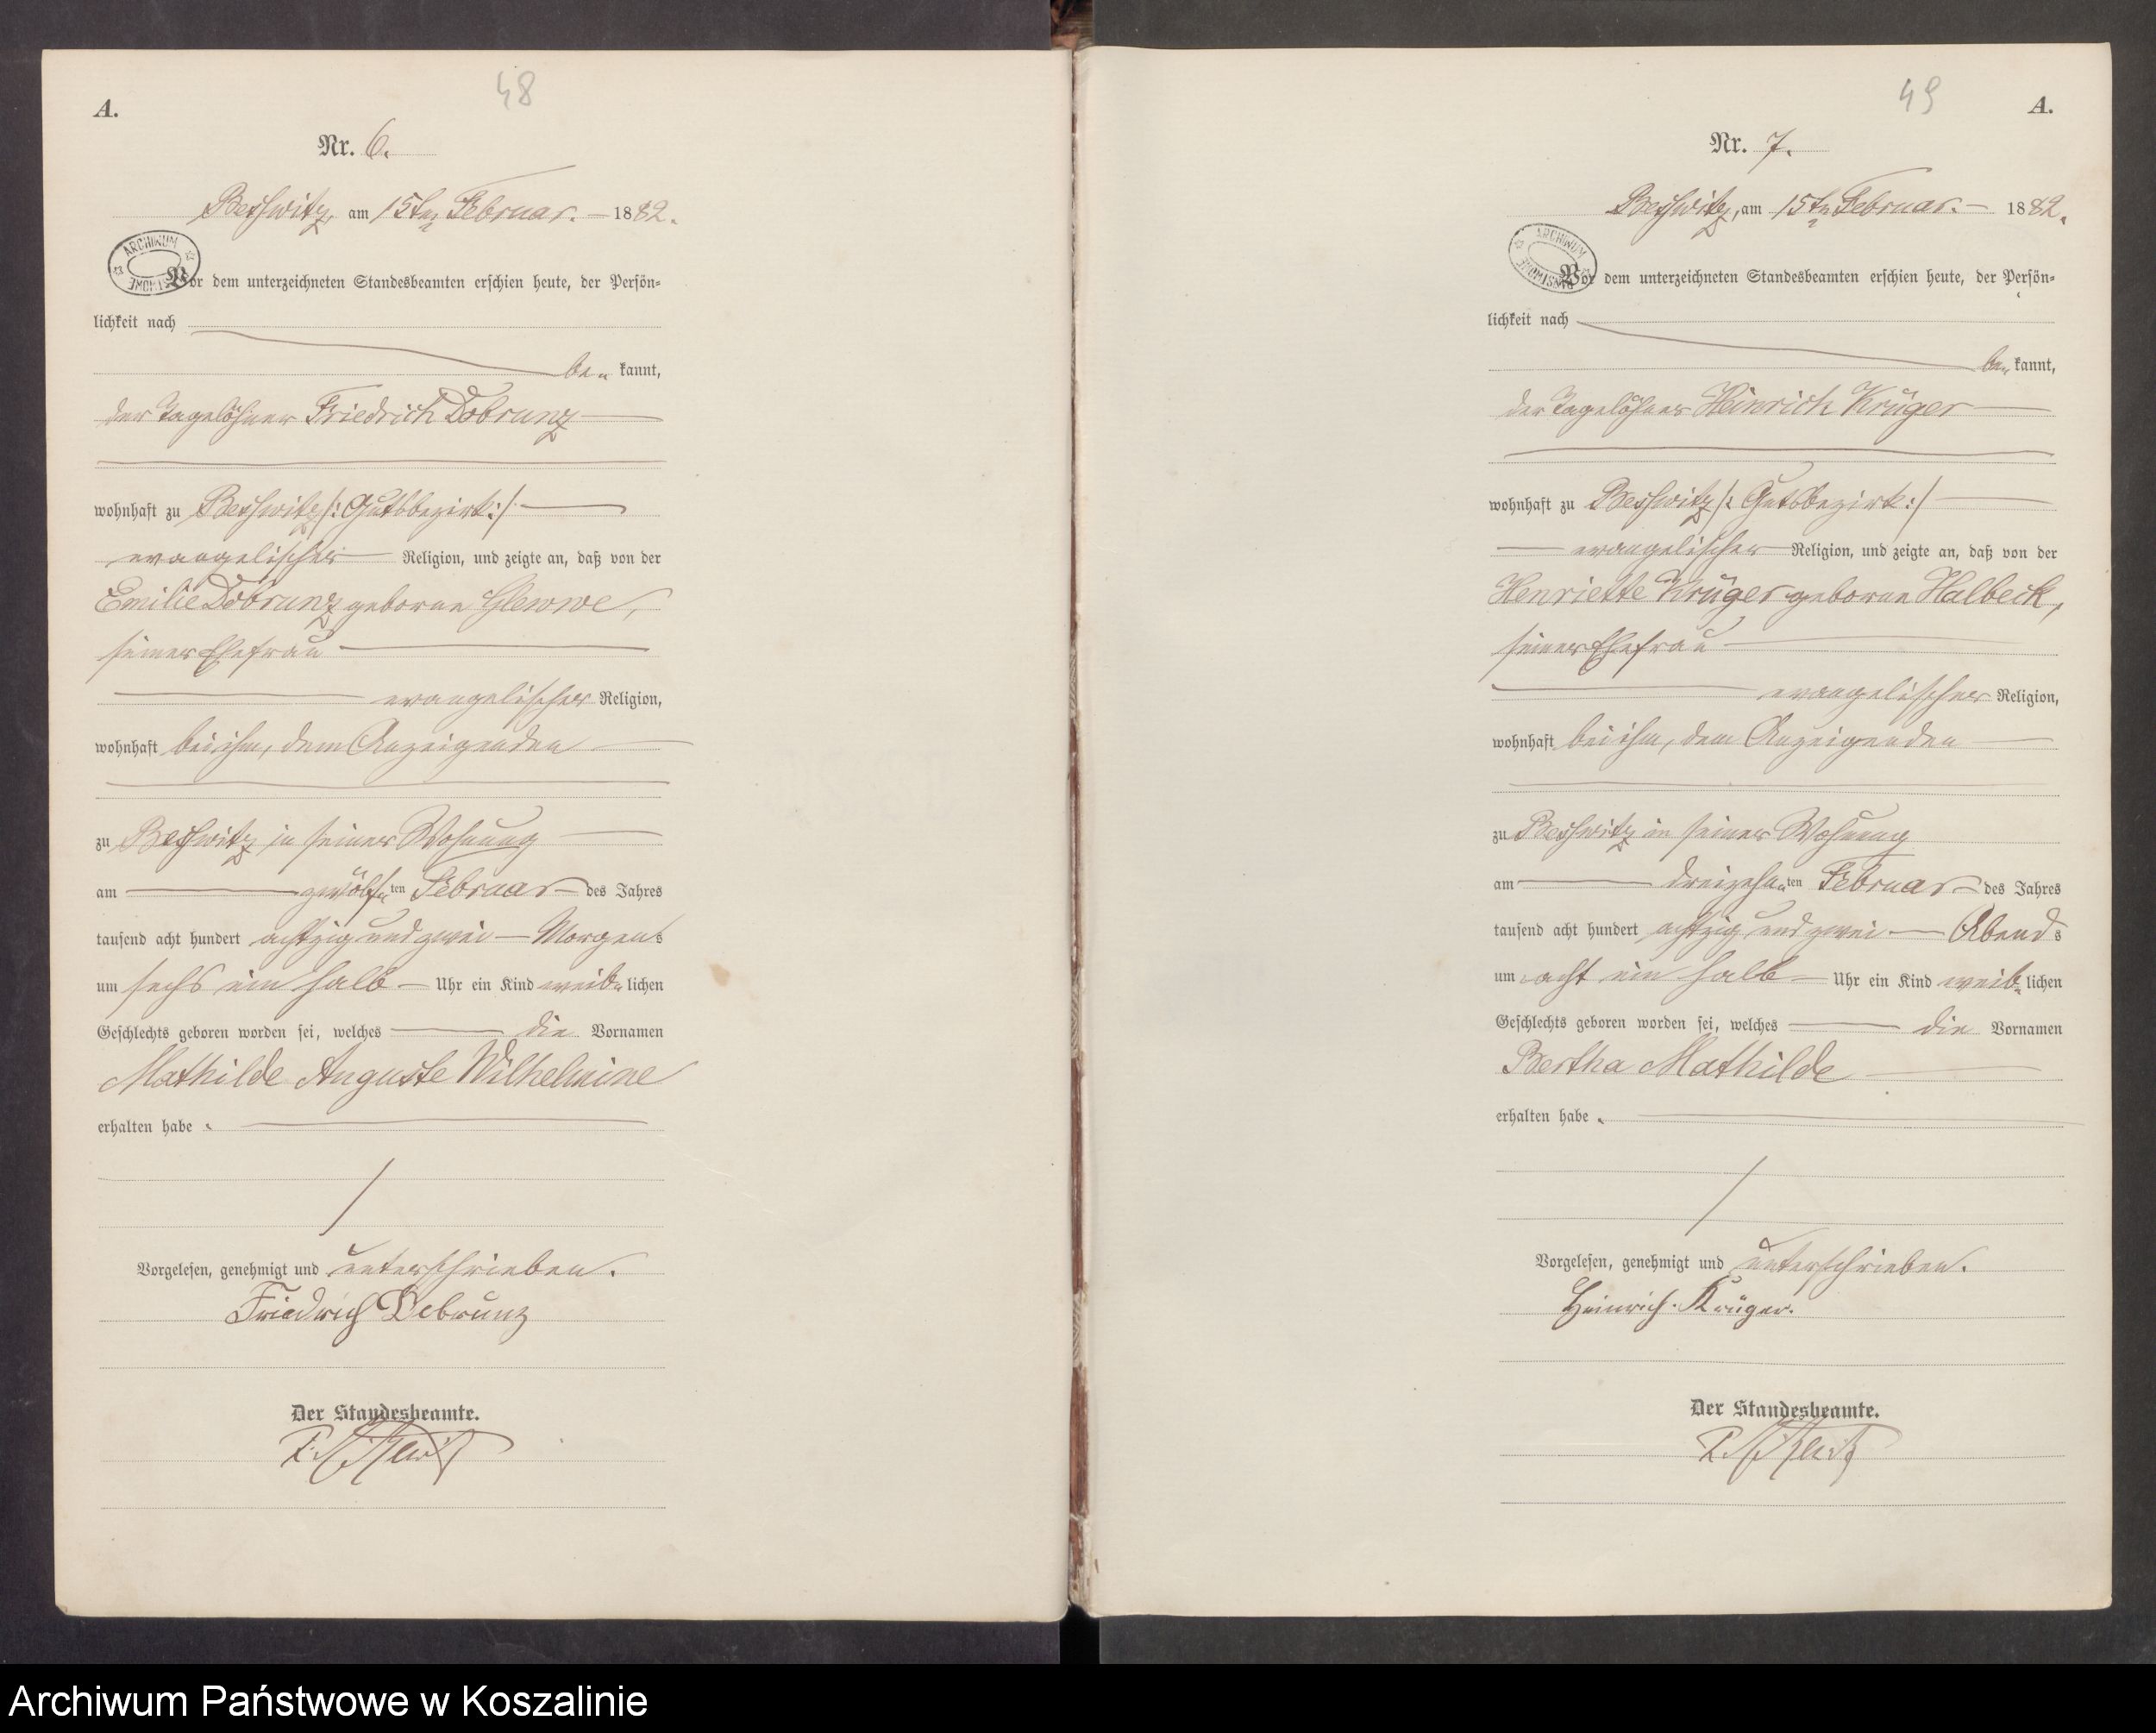 48
A.
Nr. 6.
Beßwitz, am 15ten Februar. 1882.
ARCHIWUM
Vor dem unterzeichneten Standesbeamten erschien heute, der Persön=
lichkeit nach
be= kannt,
der Tagelöhner Friedrich Dobrunz
wohnhaft zu Beßwitz /: Gutsbezirk :/
evangelischer Religion, und zeigte an, daß von der
Emilie Dobrunz geborne Glewwe,
seiner Ehefrau
evangelischer Religion,
wohnhaft bei ihm, dem Anzeigenden
zu Beßwitz in seiner Wohnung
am zwölf= ten Februar des Jahres
tausend acht hundert achtzig und zwei Morgens
um sechs ein halb Uhr ein Kind weib= lichen
Geschlechts geboren worden sei, welches die Vornamen
Mathilde Auguste Wilhelmine
erhalten habe.
Vorgelesen, genehmigt und unterschrieben.
Friedrich Dobrunz
Der Standesbeamte.
49
A.
Nr. 7.
Beßwitz, am 15ten Februar. 1882.
ARCHIWUM
Vor dem unterzeichneten Standesbeamten erschien heute, der Persön=
lichkeit nach
be= kannt,
der Tagelöhner Heinrich Krüger
wohnhaft zu Beßwitz /: Gutsbezirk :/
evangelischer Religion, und zeigte an, daß von der
Henriette Krüger geborne Halbeck,
seiner Ehefrau
evangelischer Religion,
wohnhaft bei ihm, dem Anzeigenden
zu Beßwitz in seiner Wohnung
am dreizehn= ten Februar des Jahres
tausend acht hundert achtzig und zwei Abends
um acht ein halb Uhr ein Kind weib= lichen
Geschlechts geboren worden sei, welches die Vornamen
Bertha Mathilde
erhalten habe.
Vorgelesen, genehmigt und unterschrieben.
Heinrich Krüger.
Der Standesbeamte.
Archiwum Państwowe w Koszalinie